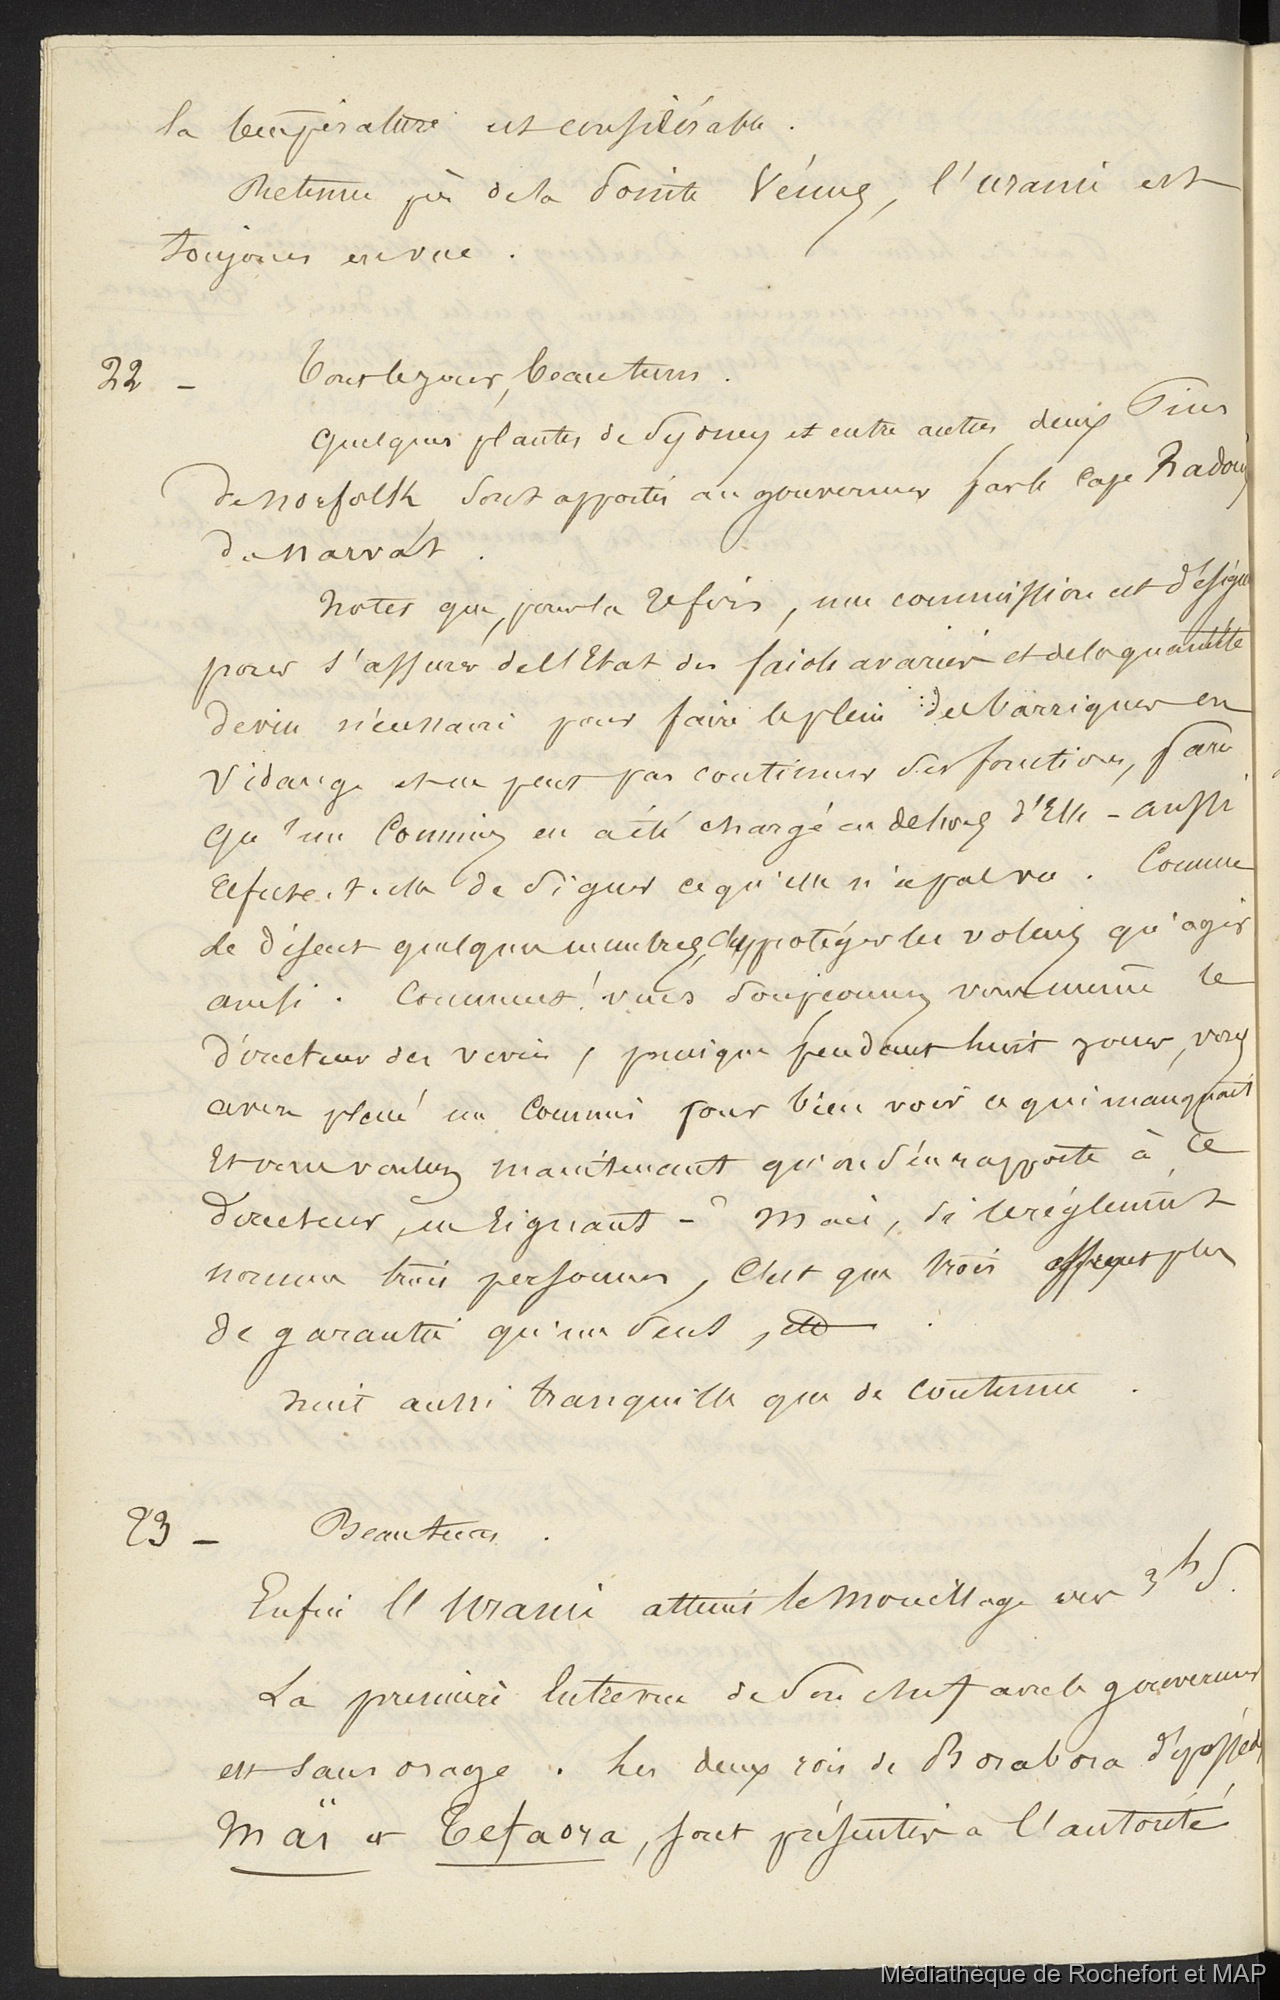 la température est considérable.
Retenue près de la Pointe Vénus, l'uranie est
toujours en vue.
22 - Tous les jours, beau tems.
Quelques plantes de Sydney et entre autres deux Pins
de norfolk, sont apportés au gouverneur par le Cape
de narvat.
Notes que, pour la refaire, une commission est désignée
pour s'assurer de l'Etat des faiols avariés et de la quantité
de vin nécessaire pour faire le plein des barriques en
vidange et ne peut pas continuer ses fonctions, parce
qu'un Commis en a été chargé en dehors d'Elle - aussi
refuse-t-elle de signer ce qu'elle n'a pas vu. Comme
le disent quelques membres, c'est protéger les voleurs qu'agir
ainsi. Comment! vous soupçonnez vous même le
directeur des vivres, puisque pendant huit jours, vous
avez placé un Commis pour bien voir ce qui manquait
Et vous voulez maintenant qu'on s'en rapporte à ce
Directeur, en signant -? Mais, si le règlement
nomme trois personnes, C'est que trois offrent plus
de garantie qu'un seul,
Nuit aussi tranquille que de coutume.
23 - Beau tems.
Enfin l'Uranie atteint le Mouillage vers 3h S.
La première Entrevue de son chef avec le gouverneur
est sans orage. Les deux rois de Borabora dépossédés
Maï et Tefaora, sont présentés a l'autorité
Médiathèque de Rochefort et MAP